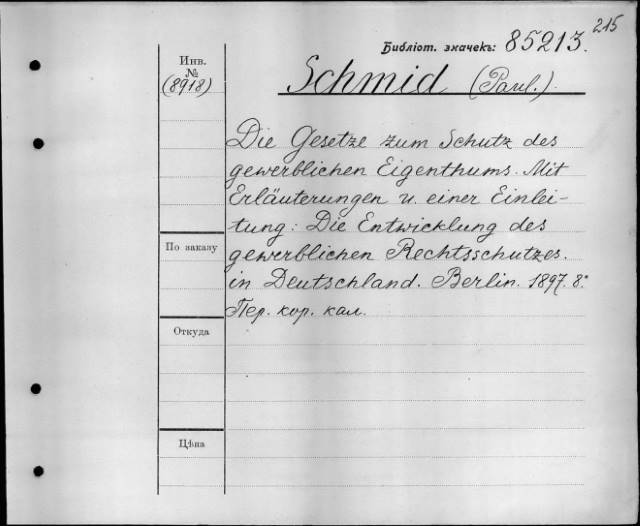 215
Библіот. значекъ: 85213.
Инв.
№
(8918)
Schmid (Paul.)
Die Gesetze zum Schutz des
gewerblichen Eigenthums. Mit
Erläuterungen u. einer Einlei-
tung: Die Entwicklung des
По заказу
gewerblichen Rechtsschutzes.
in Deutschland. Berlin. 1897. 8º
Пер. кор. кал.
Откуда
Цѣна